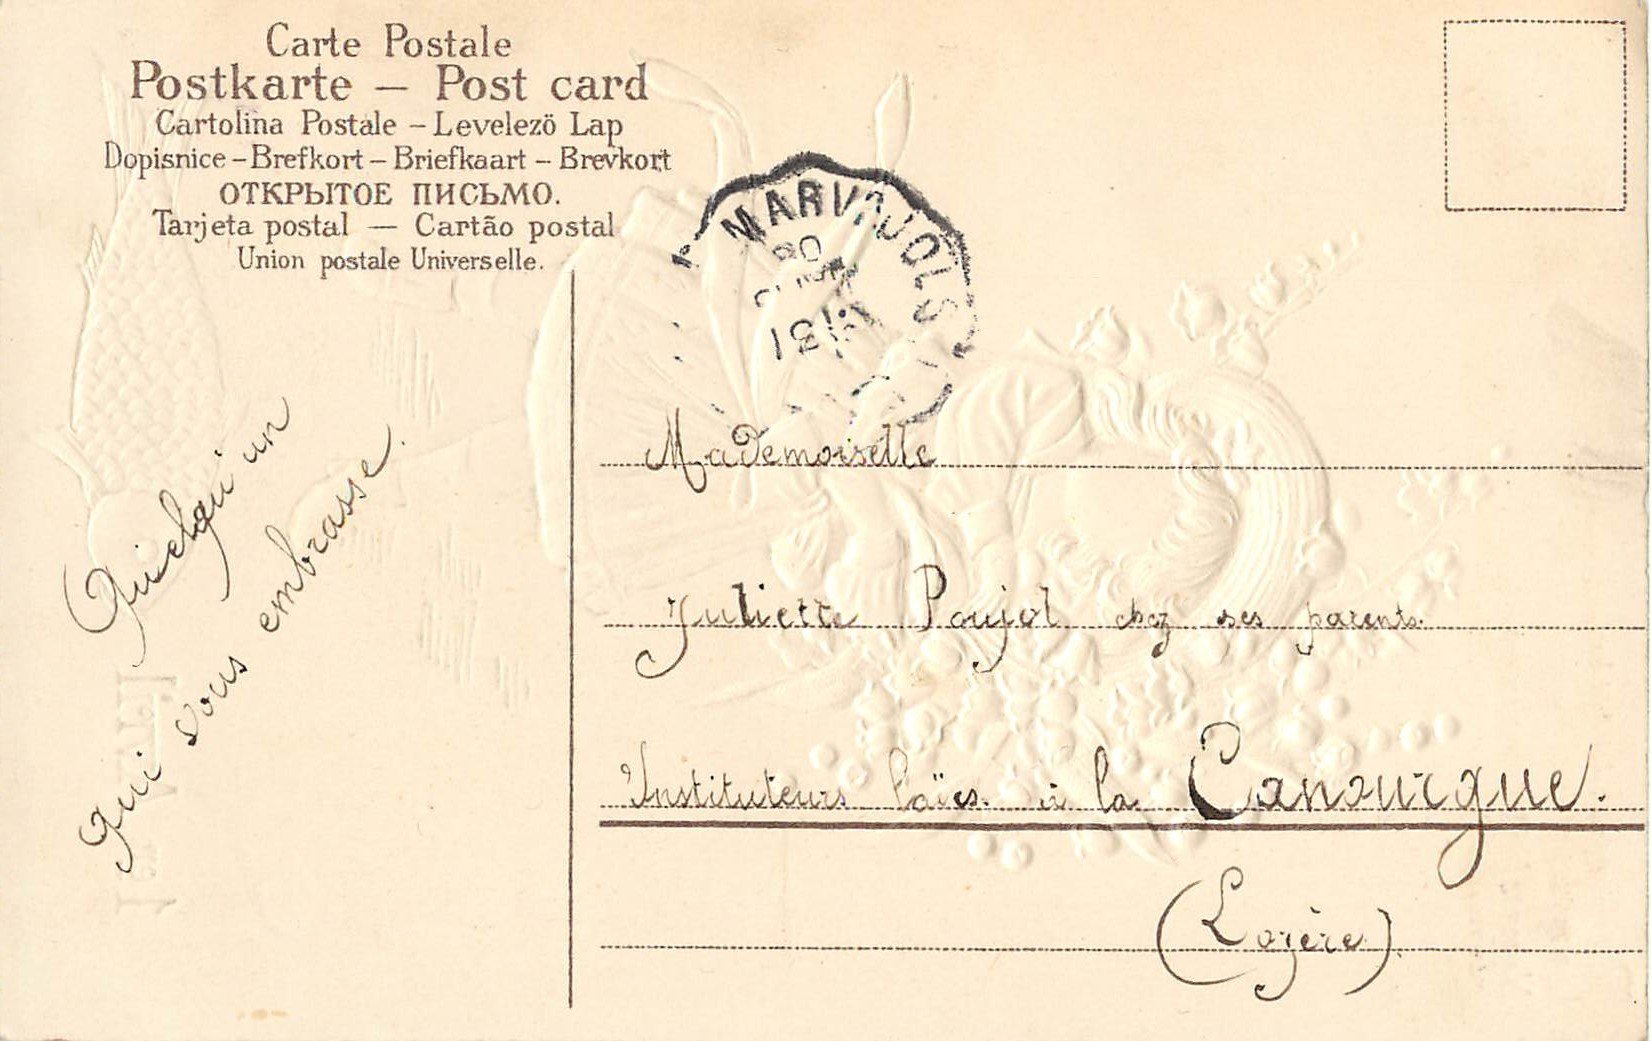 Carte Postale
Postkarte – Post card
Cartolina Postale – Levelezö Lap
Dopisnice – Brefkort – Briefkaart – Brevkort
ОТКРЫТОЕ ПИСЬМО.
Tarjeta postal — Cartão postal
Union postale Universelle.
MARVEJOLS
Quielqu'un
qui vous embrasse.
Mademoiselle
Juliette Poujol chez ses parents.
Instituteurs laïcs. à la Canourgue.
(Lozère)
1er AVRIL